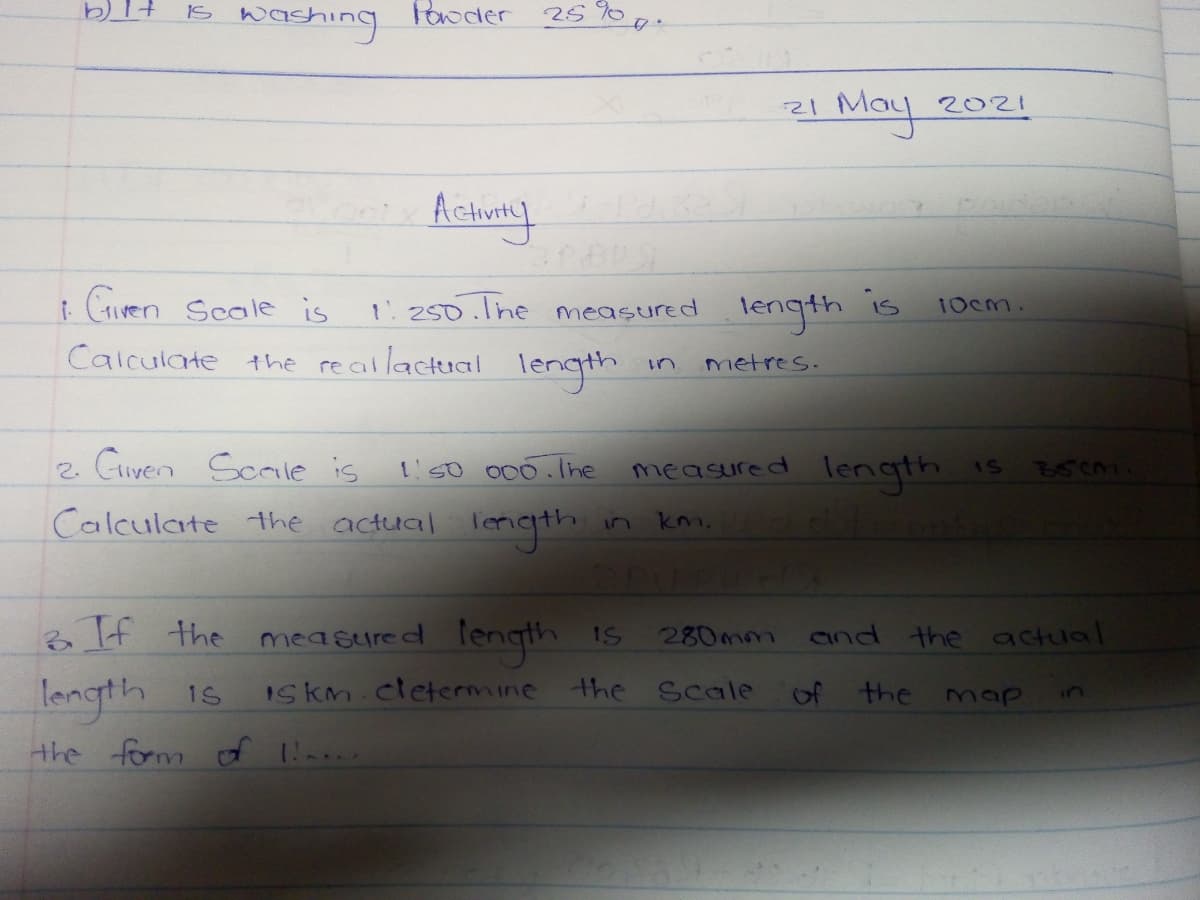 b) It is washing Powder 25%.
21 May 2021
Activity
1. Given Scale is 1:250. The measured length is 10cm.
Calculate the real/actual length in metres.
2. Given Scale is 1:50 000. The measured length is 35cm.
Calculate the actual length in km.
3. If the measured length is 280mm and the actual
length is 15km. determine the scale of the map in
the form of 1:.....